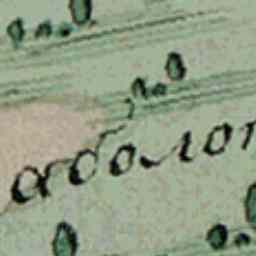 аболот